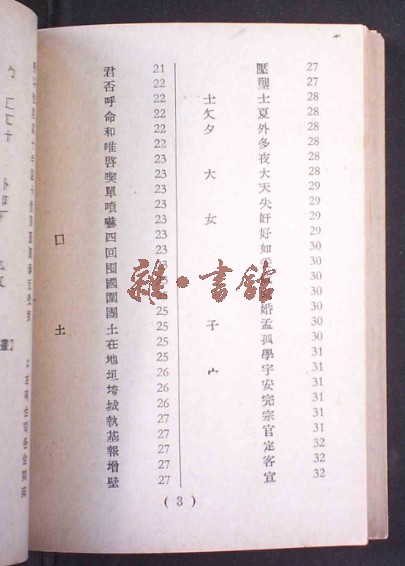 君 21
否 22
呼 22
命 22
和 22
唯 22
啓 23
喫 23
單 23
噴 23
嚇 23
囗 四 23
回 23
國
圍
團 25
土 土 25
在 25
地 25
坦 26
垮 26
城 26
執 27
基 27
報 27
增 27
壁 27
壓 27
27
士 士 28
夂 夏 28
夕 外 28
多 28
夜 28
大 大 28
天 29
失 29
女 奸 29
好 29
如 30
30
婚 30
子 孟 30
孤 30
學 31
宀 宇 31
安 31
完 31
宗 31
官 31
定 32
客 32
宣 32
( 3 )
雜·書館